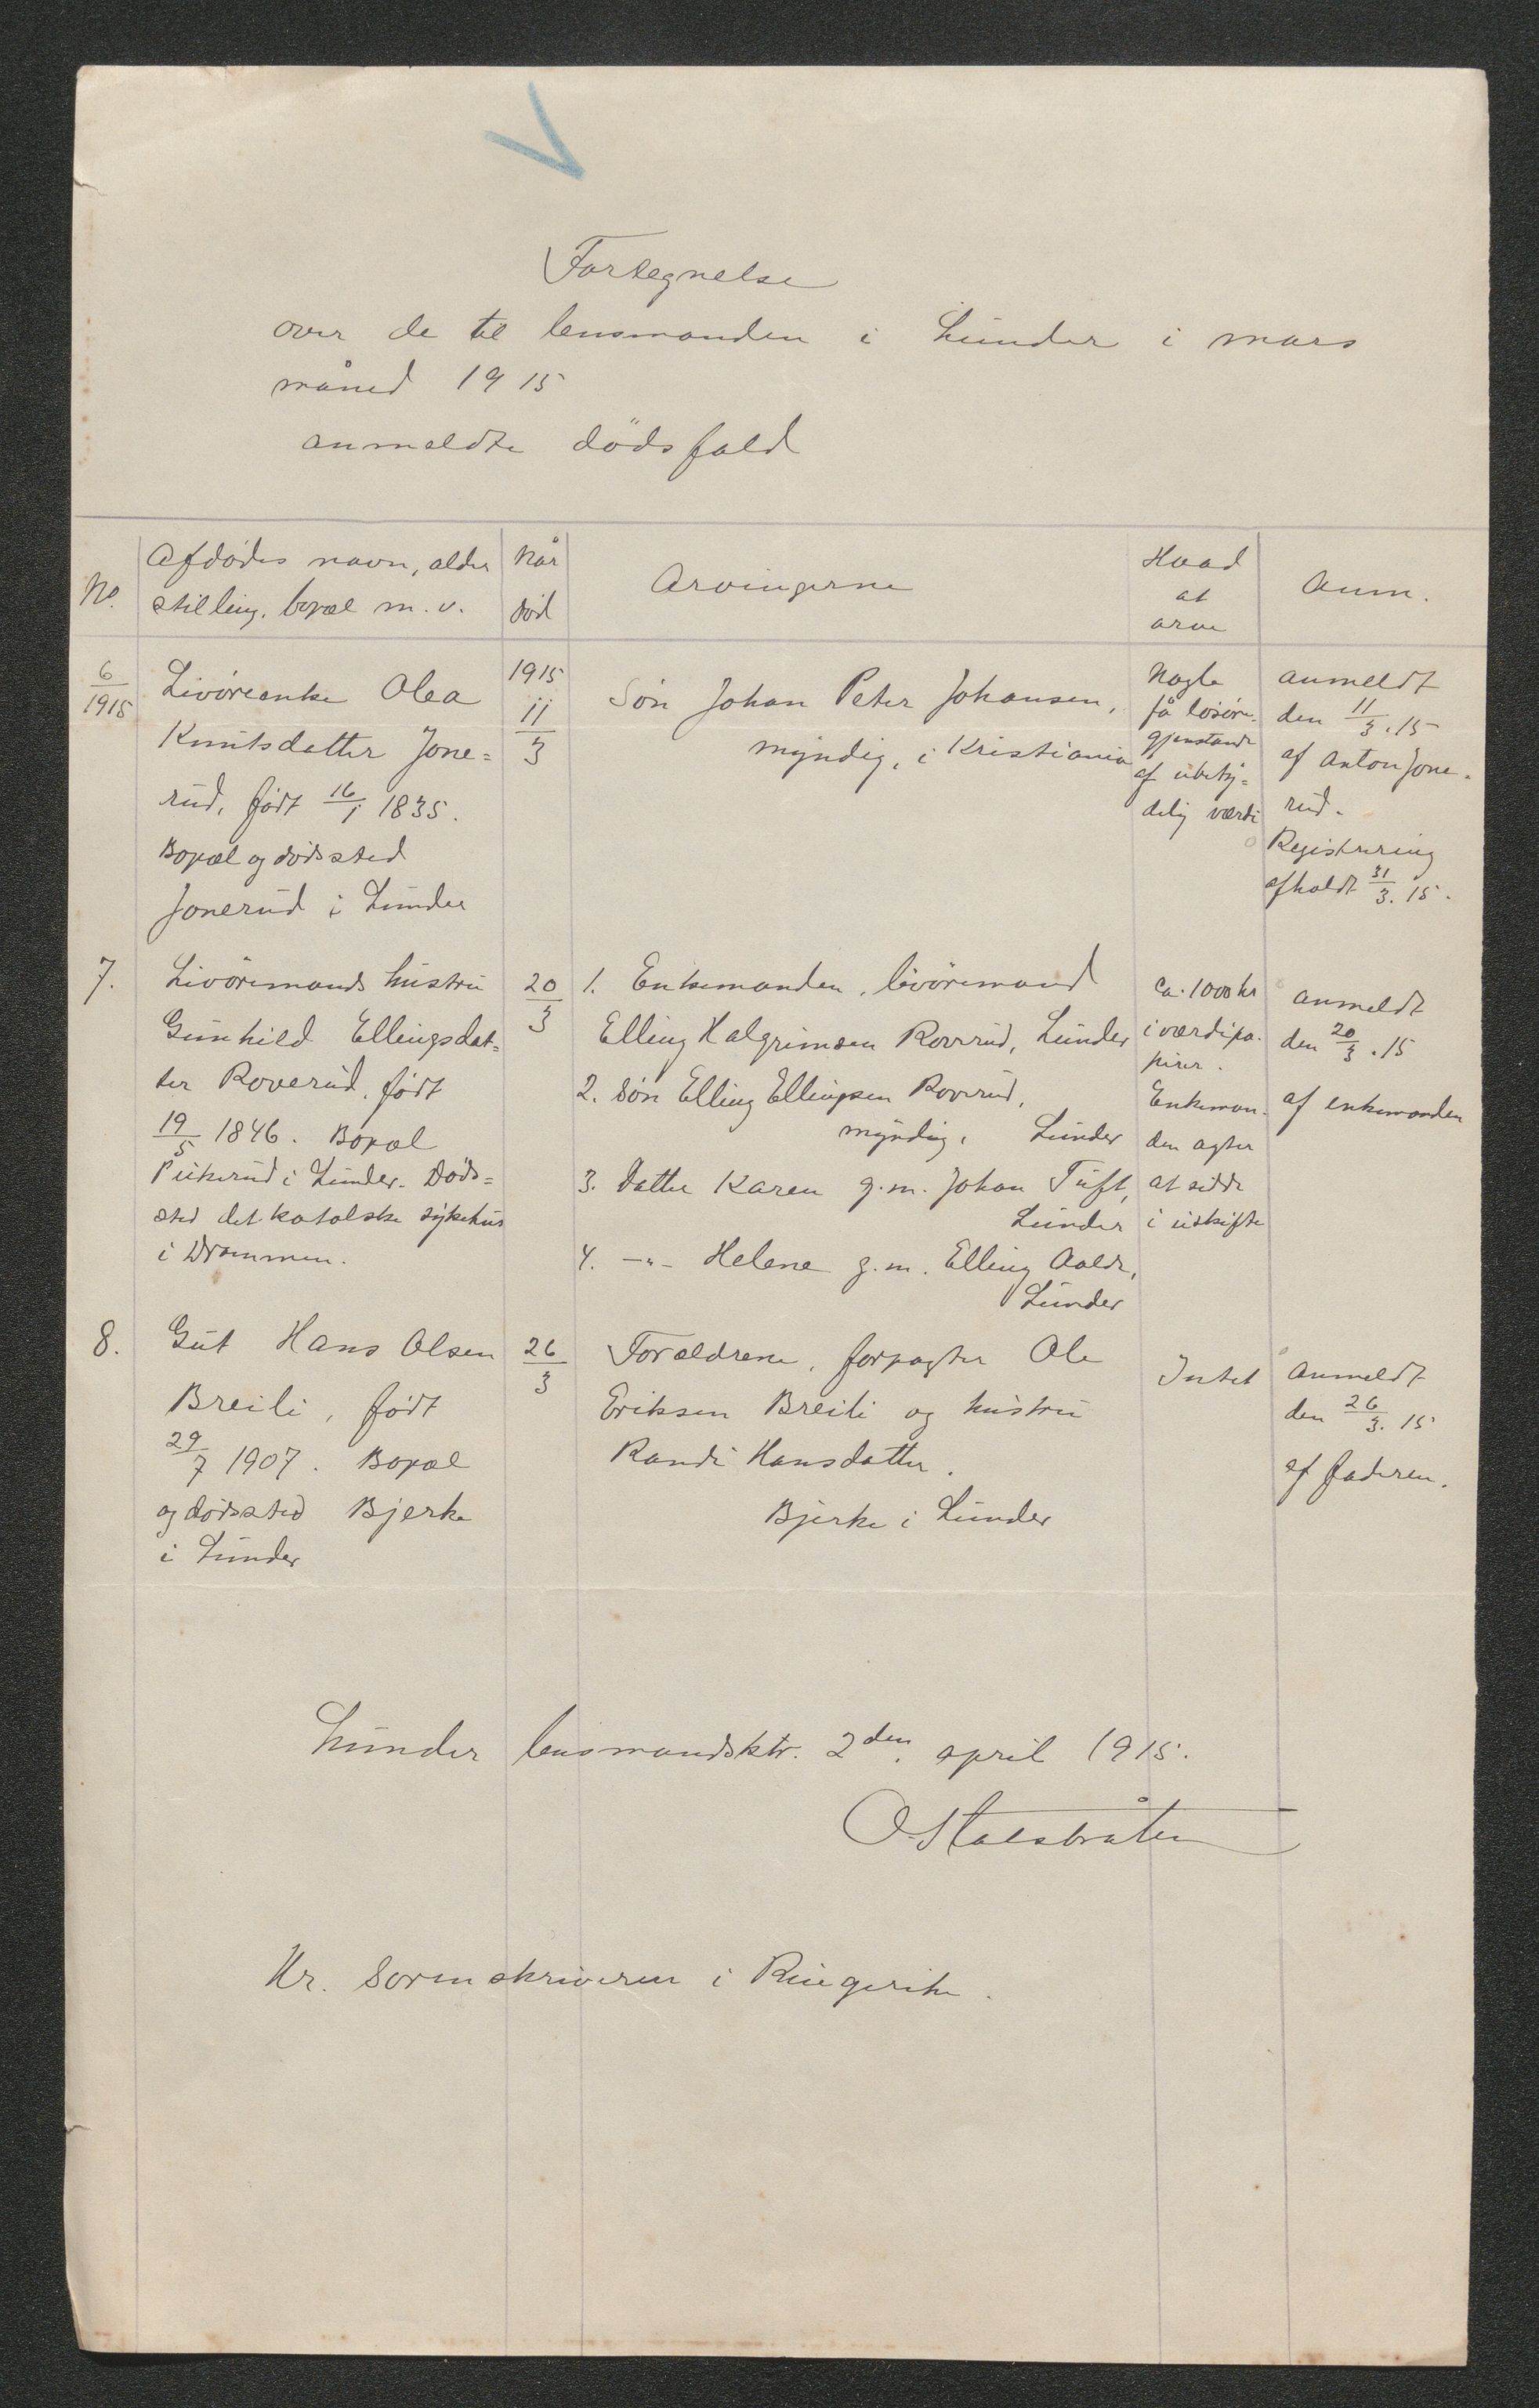 Fortegnelse
over de til lensmanden i Lunder i mars
måned 1915
anmeldte dödsfald
No.
Afdödes navn, alder
stilling, bopæl m.v.
Når
död
Arvingerne
Hvad
at
arve
Anm.
6/1915
Livöreenke Olea
Knutsdatter Jone=
rud, født 16/1 1835.
Bopæl og dödssted
Jonerud i Lunder
1915
11/3
Søn Johan Peter Johansen,
myndig, i Kristiania
Nogle
få lösöre-
gjenstande
af ubety=
delig værdi
anmeldt
den 11/3.15
af Anton Jone-
rud.
Registrering
afholdt 31/3.15.
7.
Livöremands hustru
Gunhild Ellingsdat=
ter Roverud, født
19/5 1846. Bopæl
i Lunder. Döds=
sted det katolske sykehus
i Drammen.
20/3
1. Enkemanden, livöremand
Elling Halgrimsen Roverud, Lunder
2. Søn Elling Ellingsen Roverud,
myndig, Lunder
3. Datter Karen g.m. Johan Tuft,
Lunder
4. -"- Helene g.m. Elling Aalde,
Lunder
ca. 1000 kr
i værdipa-
pirer.
Enkeman-
den agter
at sidde
i uskifte
anmeldt
den 20/3.15
af enkemanden
8.
Gut Hans Olsen
Breili, født
29/7 1907. Bopæl
og dödssted Bjerke
i Lunder
26/3
Forældrene, forpagter Ole
Eriksen Breili og hustru
Randi Hansdatter.
Bjerke i Lunder
Intet
anmeldt
den 26/3.15
af faderen.
Lunder lensmandsktr. 2den april 1915.
O. Stalsbråten
Hr. Sorenskriveren i Ringerike.